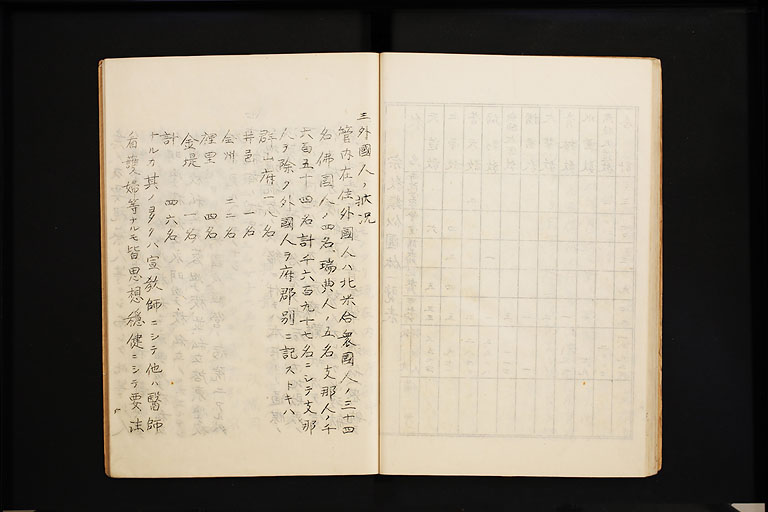 三外國人ノ状况
管内在住外國人ハ北米合衆國人ノ三十四
名佛國人ノ四名、瑞典人ノ五名支那人ノ千
六百五十四名計千六百九十七名ニシテ支那
人ヲ除ク外國人ヲ府郡別ニ記ストキハ
群山府一八名
井邑 一名
全州 二二名
裡里 四名
金堤 一名
計 四六名
ナルカ其ノ多クハ宣敎師ニシテ他ハ醫師
看護婦等ナルモ皆思想穩健ニシテ要注